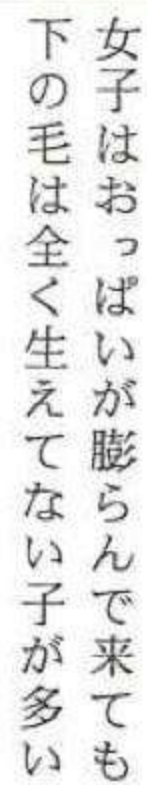 女子はおっぱいが膨らんで来ても
下の毛は全く生えてない子が多い